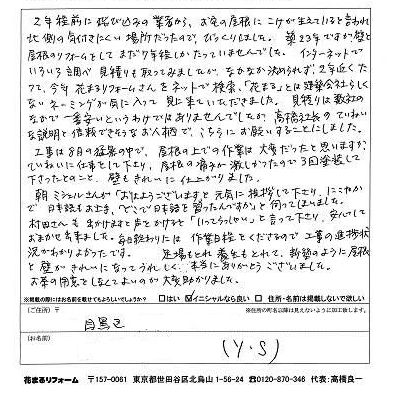 2年程前に飛び込みの業者から、お宅の屋根にこけが生えていると言われ
北側の気付きにくい場所だったので、びっくりしました。築23年ですが壁と
屋根のリフォームをしてまだ7年程しかたっていませんでした。インターネットで
いろいろ調べ見積りも取ってみましたが、なかなか決められず、2年近くたって、
今年花まるリフォームさんをネットで検索、「花まる」とは建築会社らしく
ないネーミングが気に入って見に来ていただきました。見積りは数社の
なかで一番安いというわけではありませんでしたが、高橋社長のていねい
な説明と信頼できそうなお人柄で、こちらにお願いすることにしました。
工事は8月の猛暑の中で、屋根の上での作業は大変だったと思いますが
ていねいに仕事をして下さり、屋根の痛みが激しかったので3回塗装して
下さったとのこと、壁もきれいに仕上がりました。
朝ミシェルさんが「おはようございます」と元気に挨拶して下さり、にこやか
で日本語もお上手、「どこで日本語を習ったんですか」と伺ってしまいました。
村田さんも出かけますと声をかけると「いってらっしゃい」と言って下さり、安心して
おまかせ出来ました。毎日終わりには作業日程をくださるので工事の進捗状
況がわかりよかったです。足場もとれ養生もとれて、新築のように屋根
と壁がきれいになってうれしく、本当にありがとうございました。
お茶の用意をしなくてよいのが大変助かりました。
※掲載の際にはお名前を載せてもよろしいでしょうか？ □はい ☑イニシャルなら良い □住所・名前は掲載しないで欲しい
(ご住所) 〒 ※ご住所の町名以降は見えないように加工致します。
目黒区
(お名前)
(Y・S)
花まるリフォーム 〒157-0061 東京都世田谷区北烏山1-56-24 ✆0120-870-346 代表:高橋良一